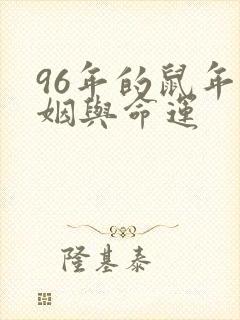 96年的鼠年
姻與命運
隆基泰